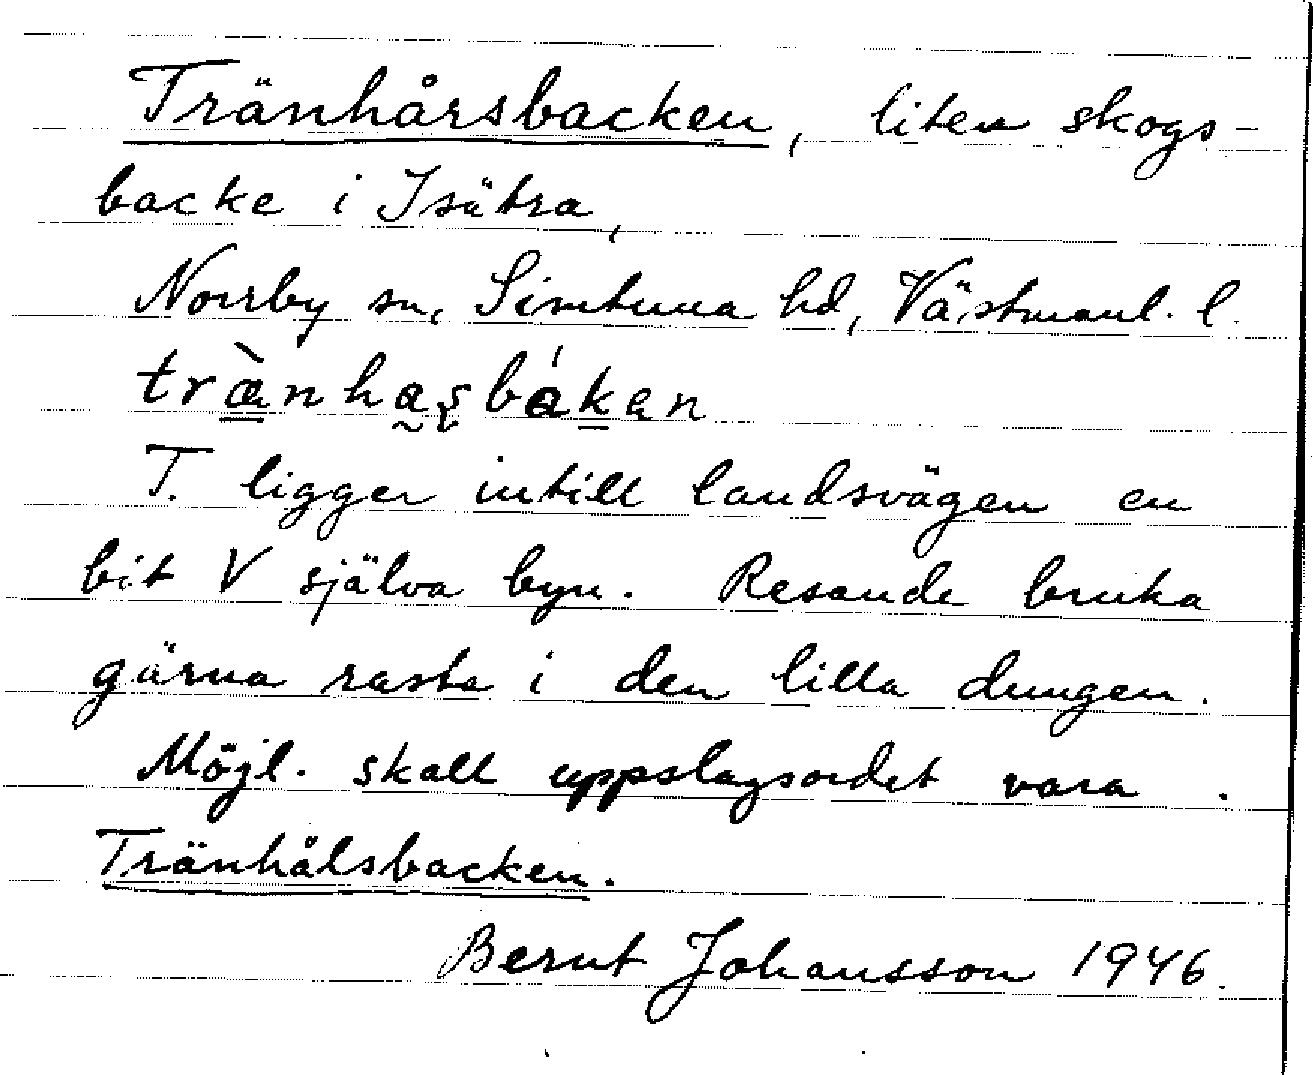 Tränhårsbacken, liten skogs-
backe i Isätra,
Norrby sn, Simtuna hd, Västmanl. l.
træ̀nhas̬bákan
T. ligger intill landsvägen en
bit V själva byn. Resande bruka
gärna rasta i den lilla dungen.
Möjl. skall uppslagsordet vara
Tränhålsbacken.
Bernt Johansson 1946.